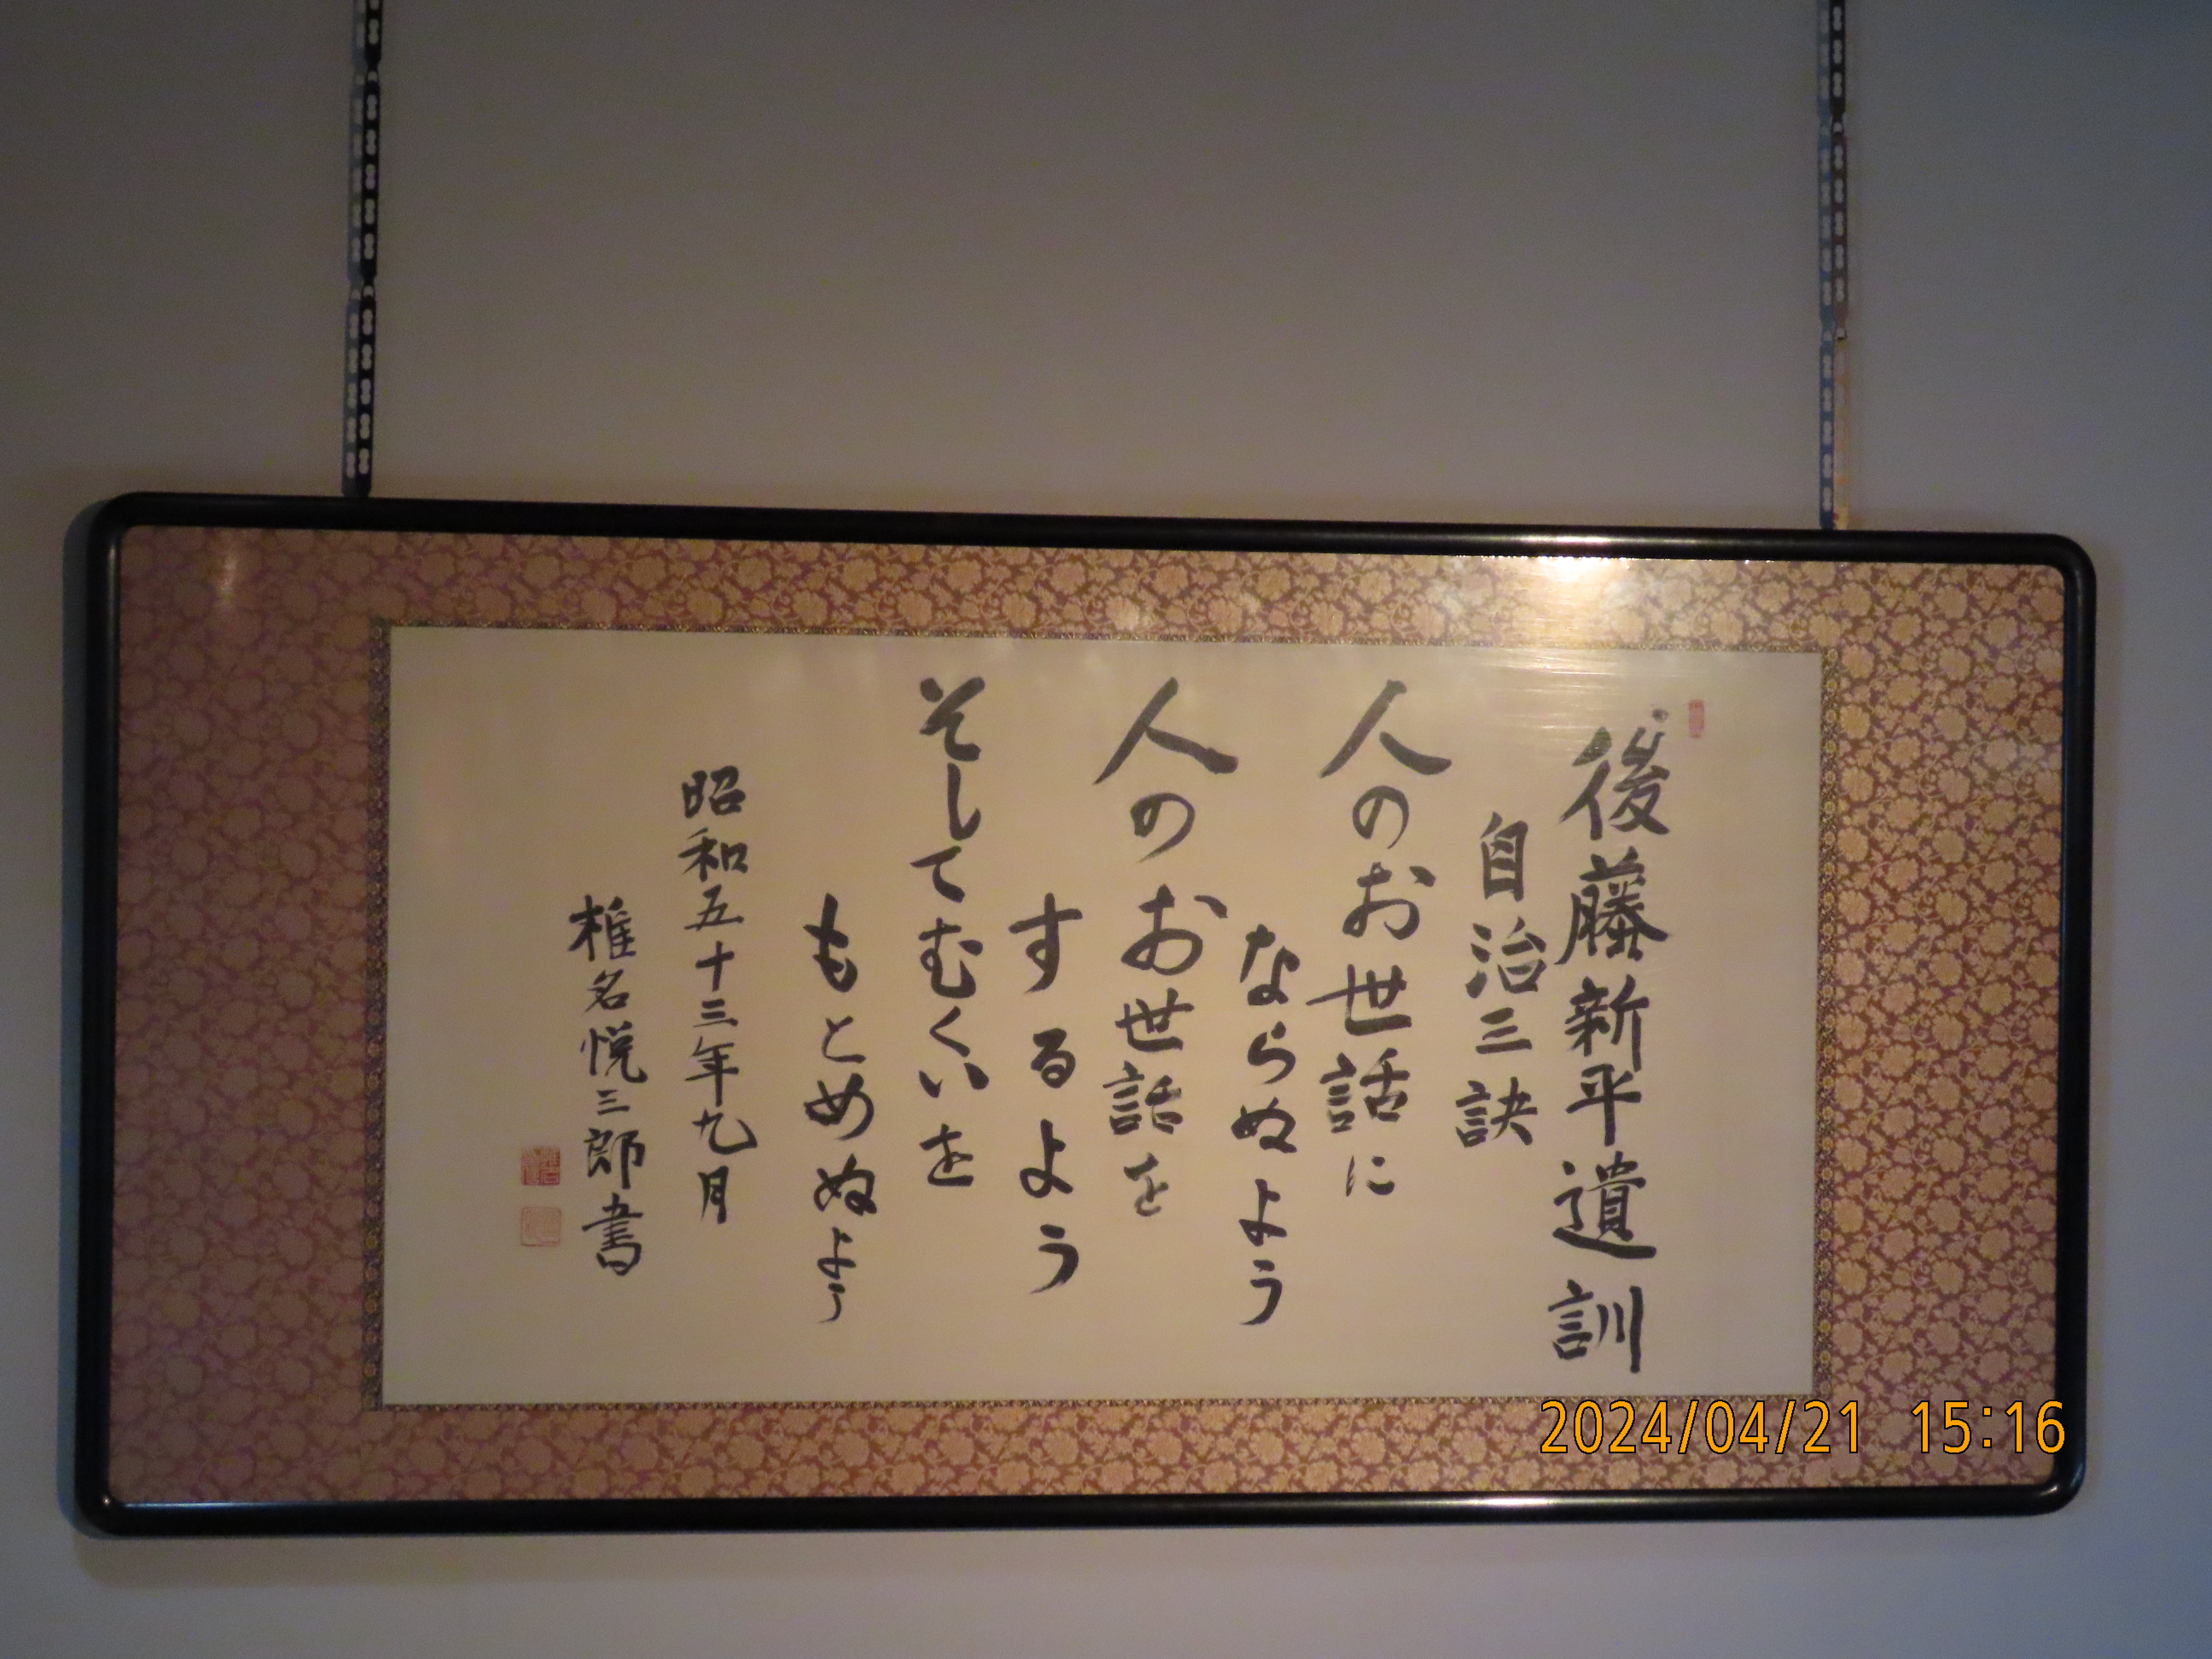 後藤新平遺訓
自治三訣
人のお世話に
ならぬよう
人のお世話を
するよう
そしてむくいを
もとめぬよう
昭和五十三年九月
椎名悦三郎書
2024/04/21 15:16